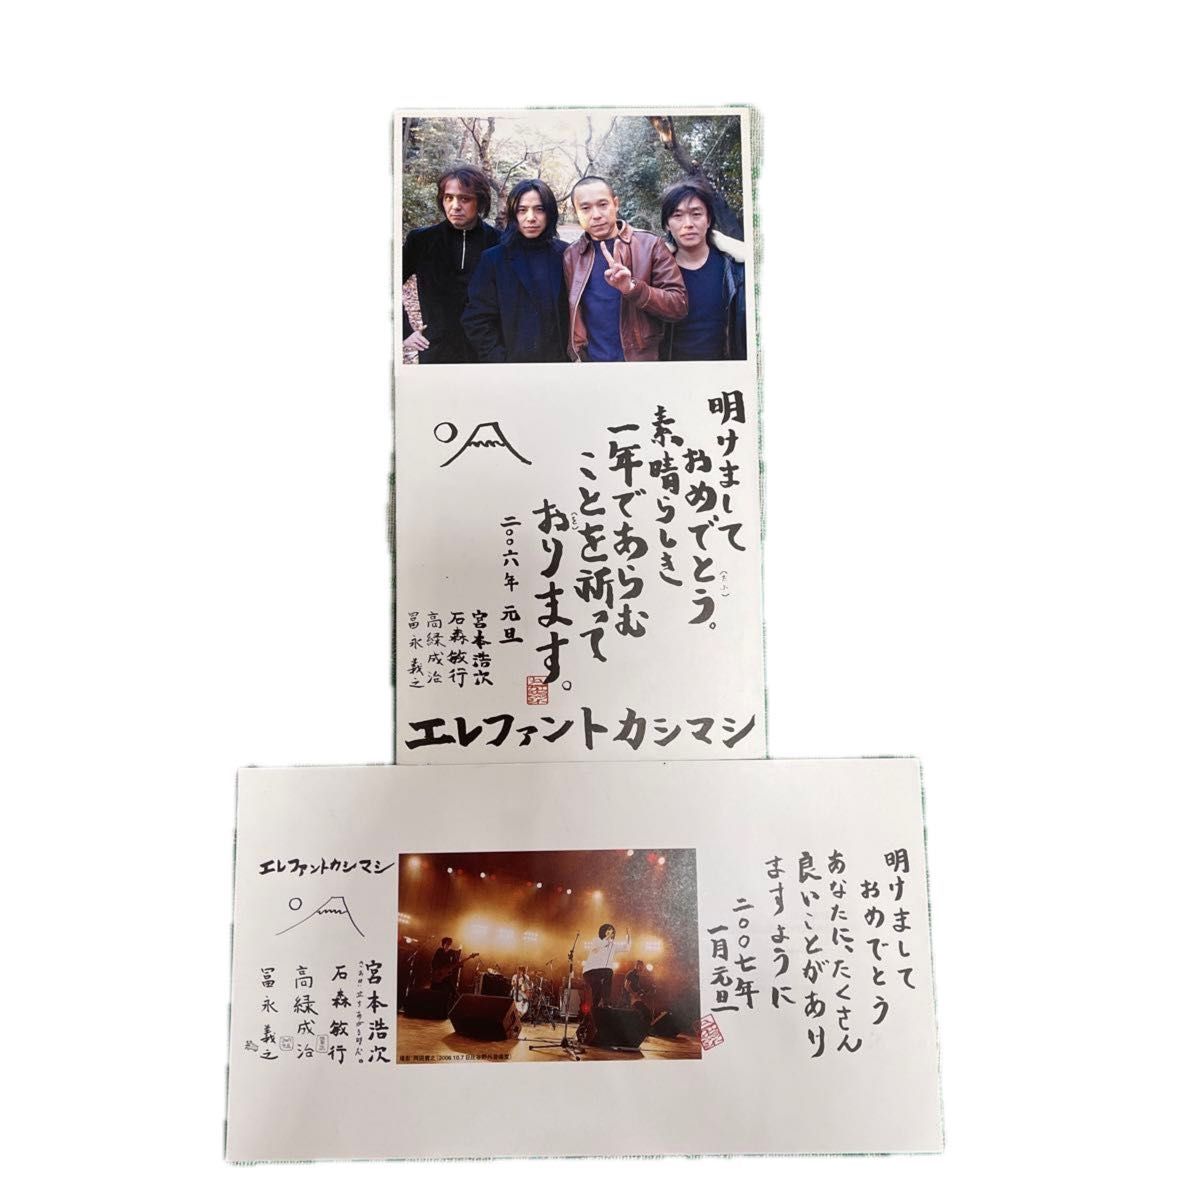 明けまして
おめでとう。
(たふ)
素晴らしき
一年であらむ
ことを祈って
(を)
おります。
二〇〇六年 元旦
宮本浩次
石森敏行
高緑成治
冨永義之
エレファントカシマシ
明けまして
おめでとう
あなたに、たくさん
良いことがあり
ますように
二〇〇七年
一月元旦
撮影:岡田貴之(2006.10.7 日比谷野外音楽堂)
エレファントカシマシ
宮本浩次
石森敏行
高緑成治
冨永義之